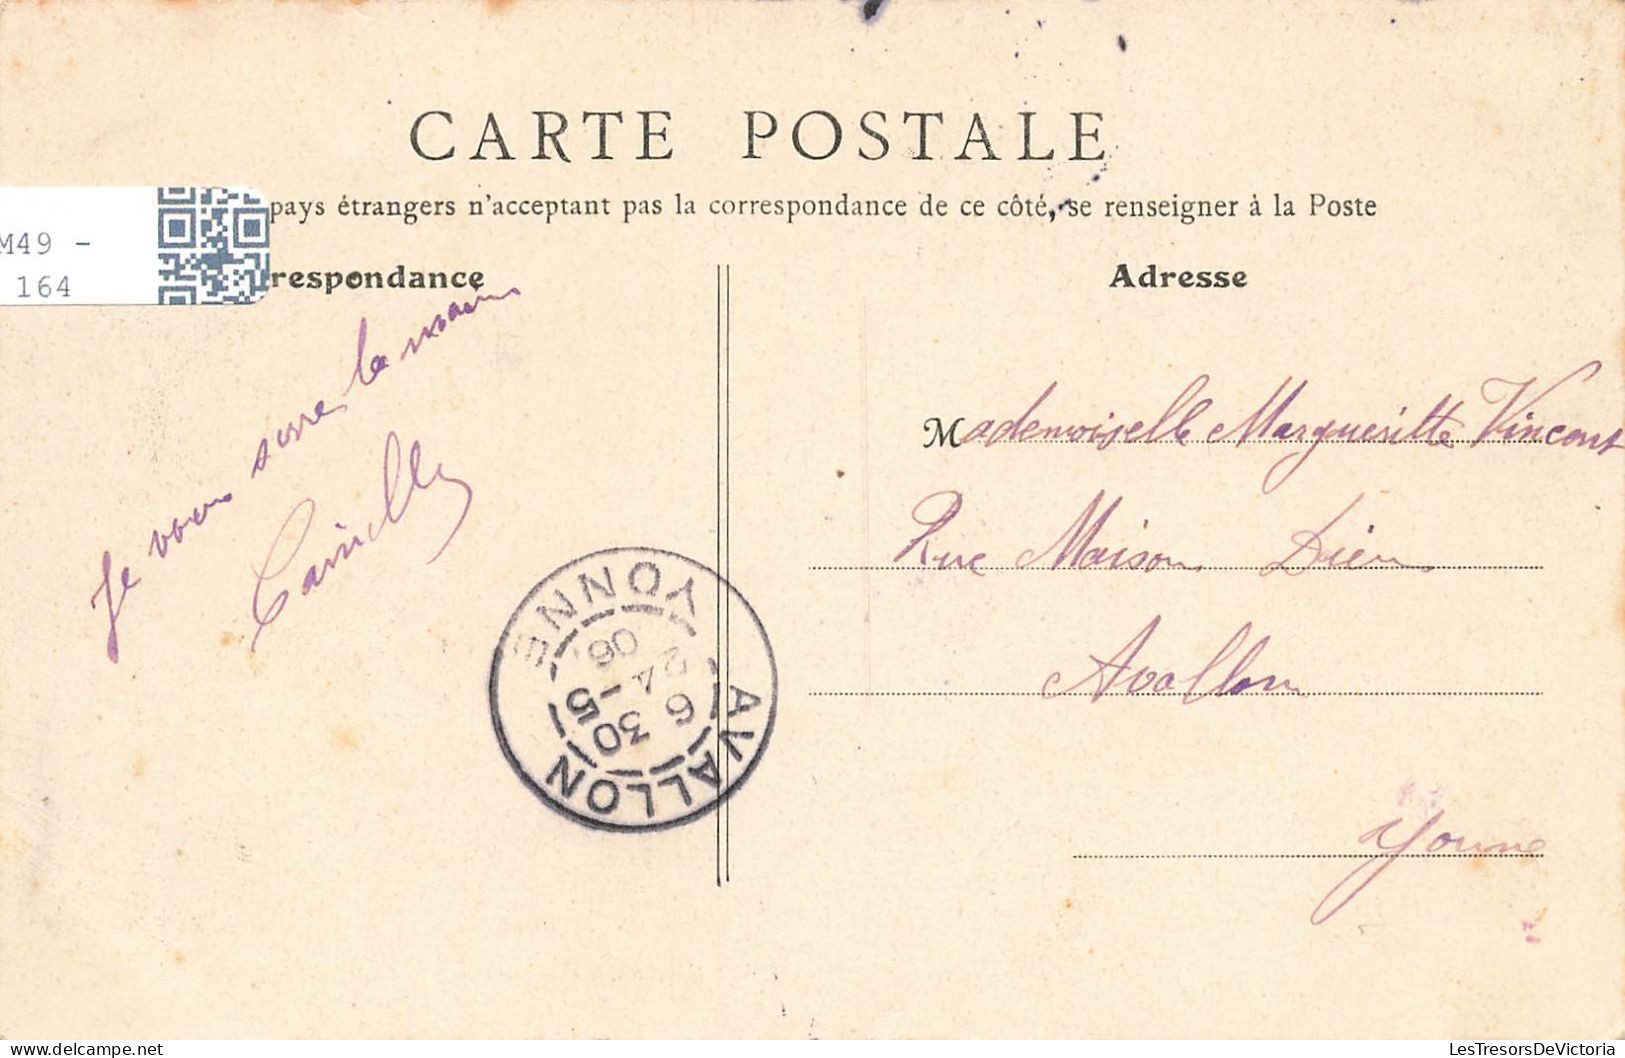 CARTE POSTALE
pays étrangers n'acceptant pas la correspondance de ce côté, se renseigner à la Poste
M49 -
164
respondance
Adresse
Je vous serre la main
Mademoiselle Margueritte Vincent
Rue Maison Dieu
Avallon
Yonne
AVALLON
YONNE
6 30
24 - 5
06
LesTresorsDeVictoria